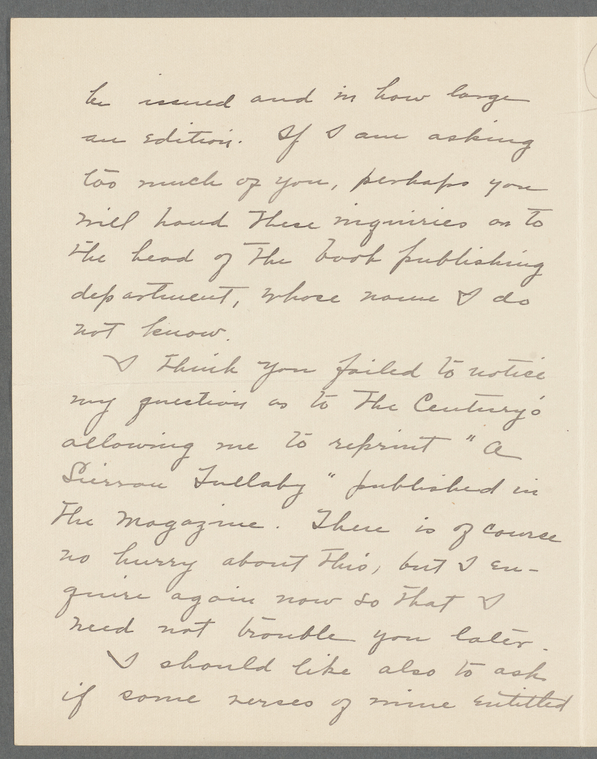 be issued and in how large
an edition. If I am asking
too much of you, perhaps you
will hand these inquiries on to
the head of the book publishing
department, whose name I do
not know.
I think you failed to notice
my question as to The Century's
allowing me to reprint "A
Sierran Lullaby" published in
the Magazine. There is of course
no hurry about this, but I en-
quire again now so that I
need not trouble you later.
I should like also to ask
if some verses of mine entitled